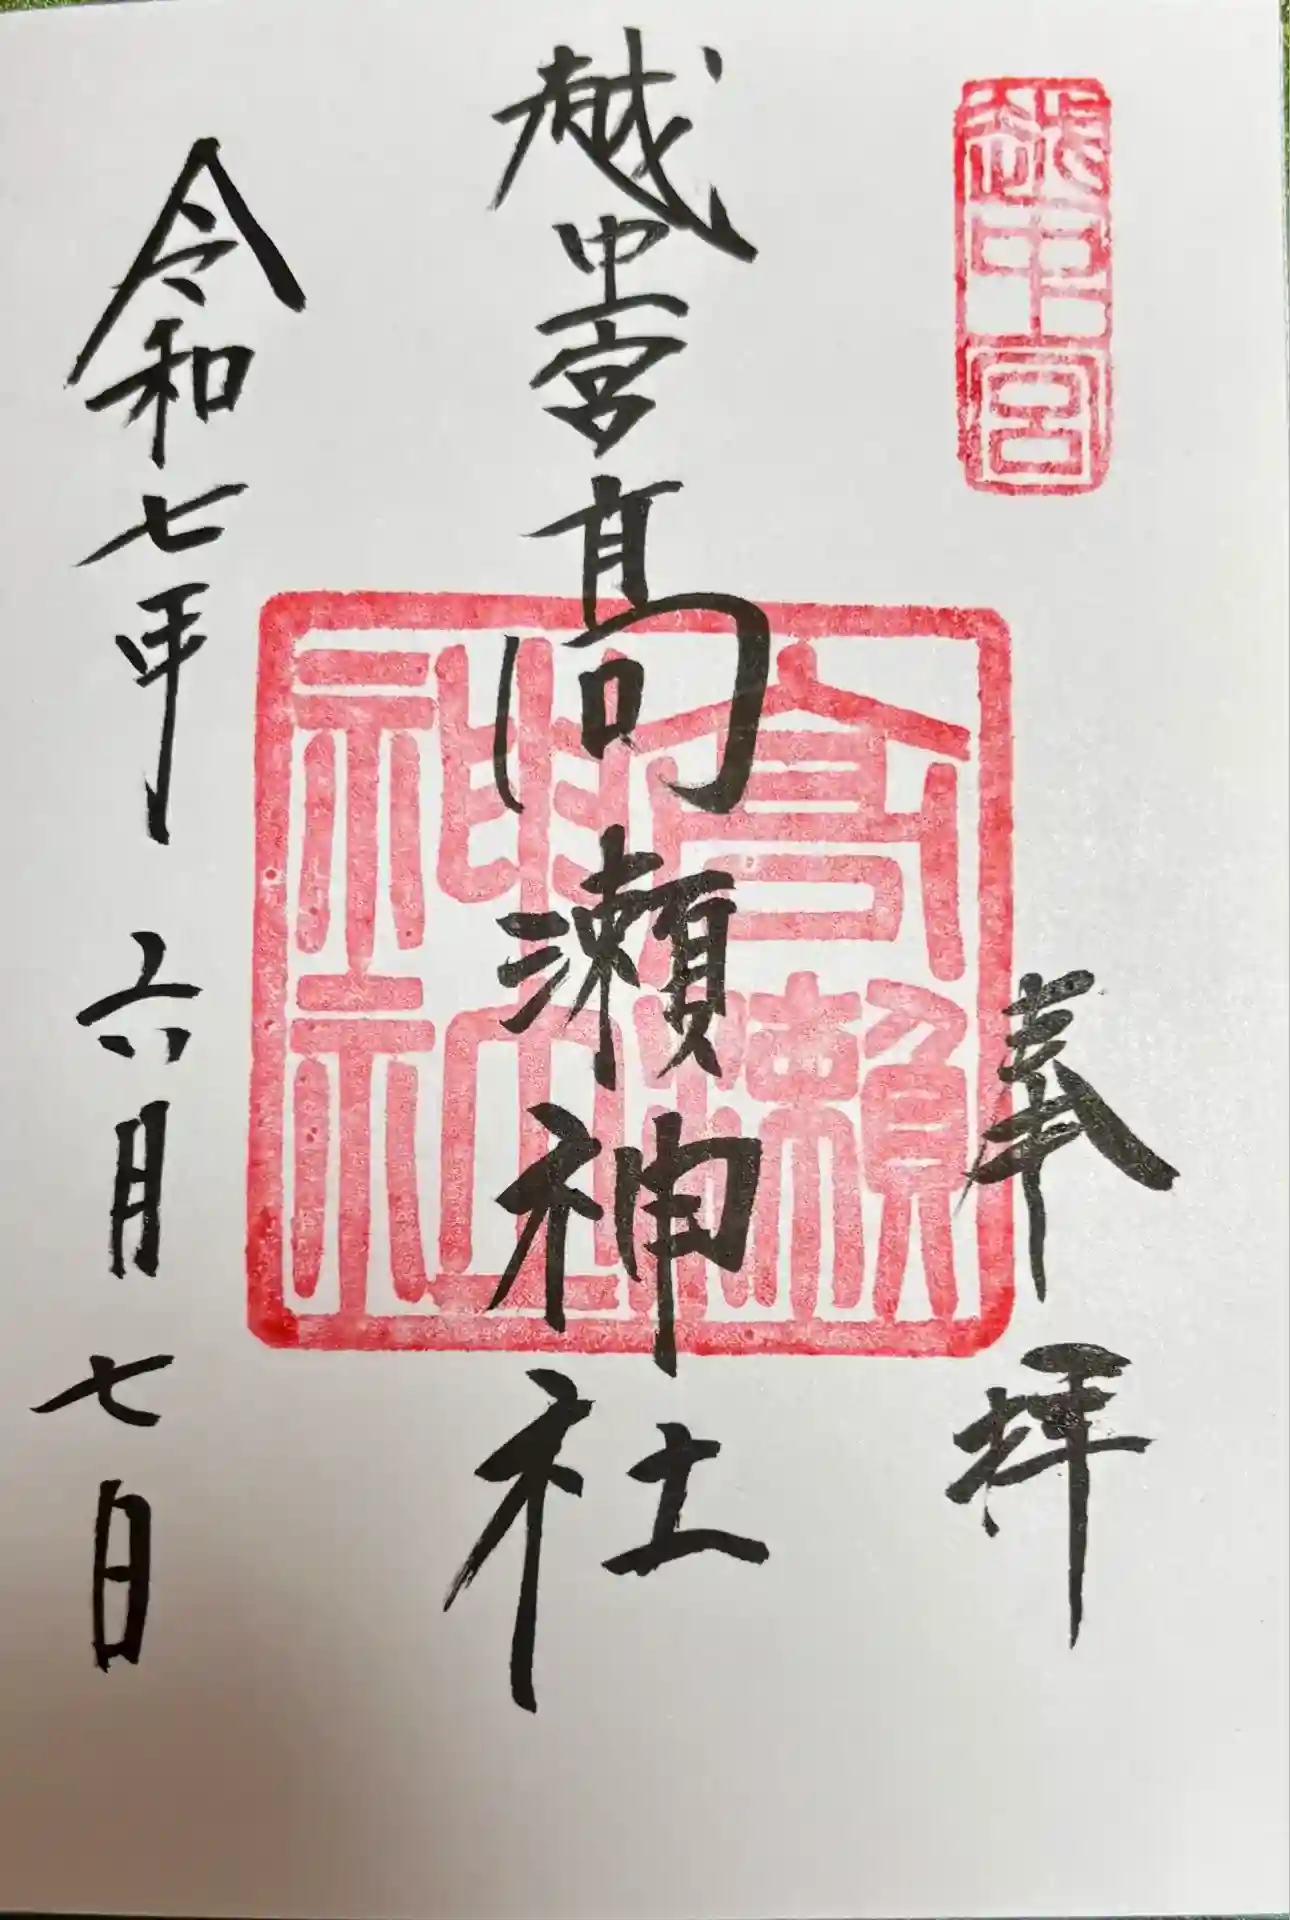 越中一宮
奉拝
越中一宮髙瀬神社
高瀬神社
令和七年 六月七日